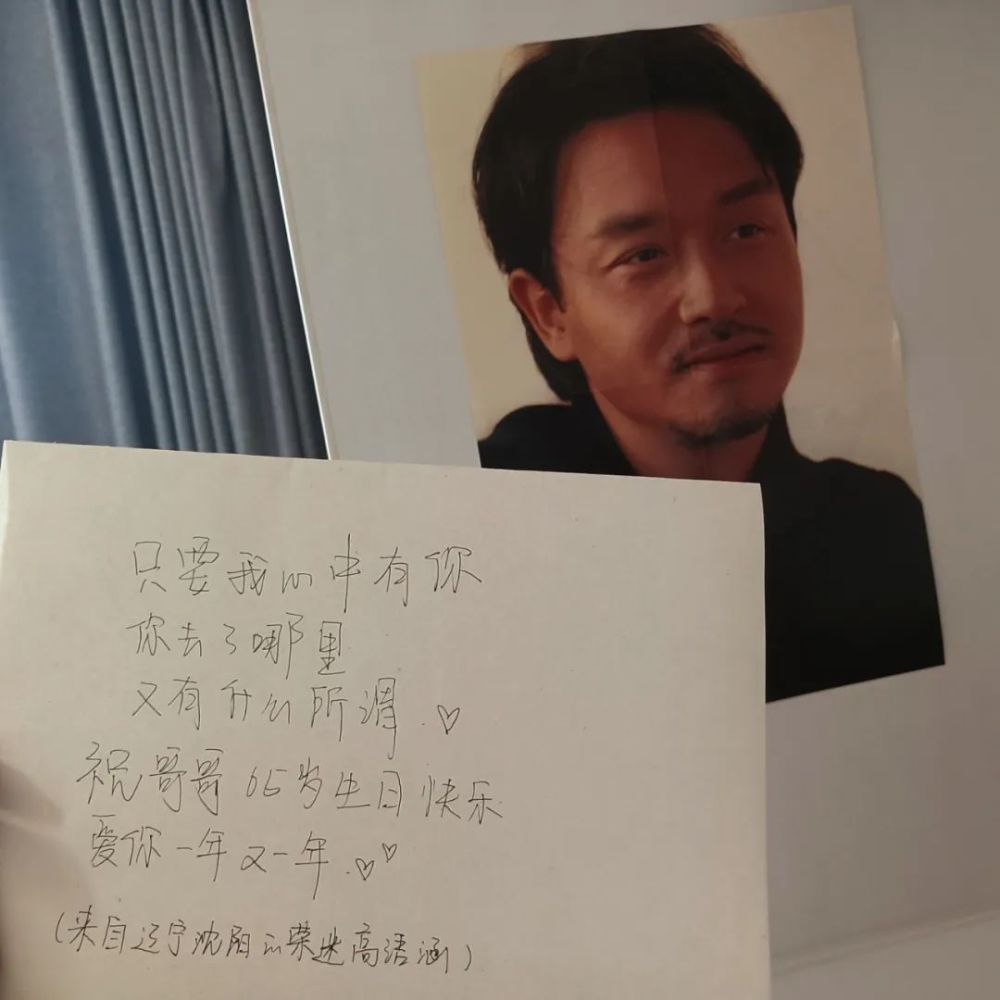 只要我心中有你
你去了哪里
又有什么所谓.♡
祝哥哥65岁生日快乐
爱你一年又一年.♡♡
(来自辽宁沈阳的荣迷高语涵)